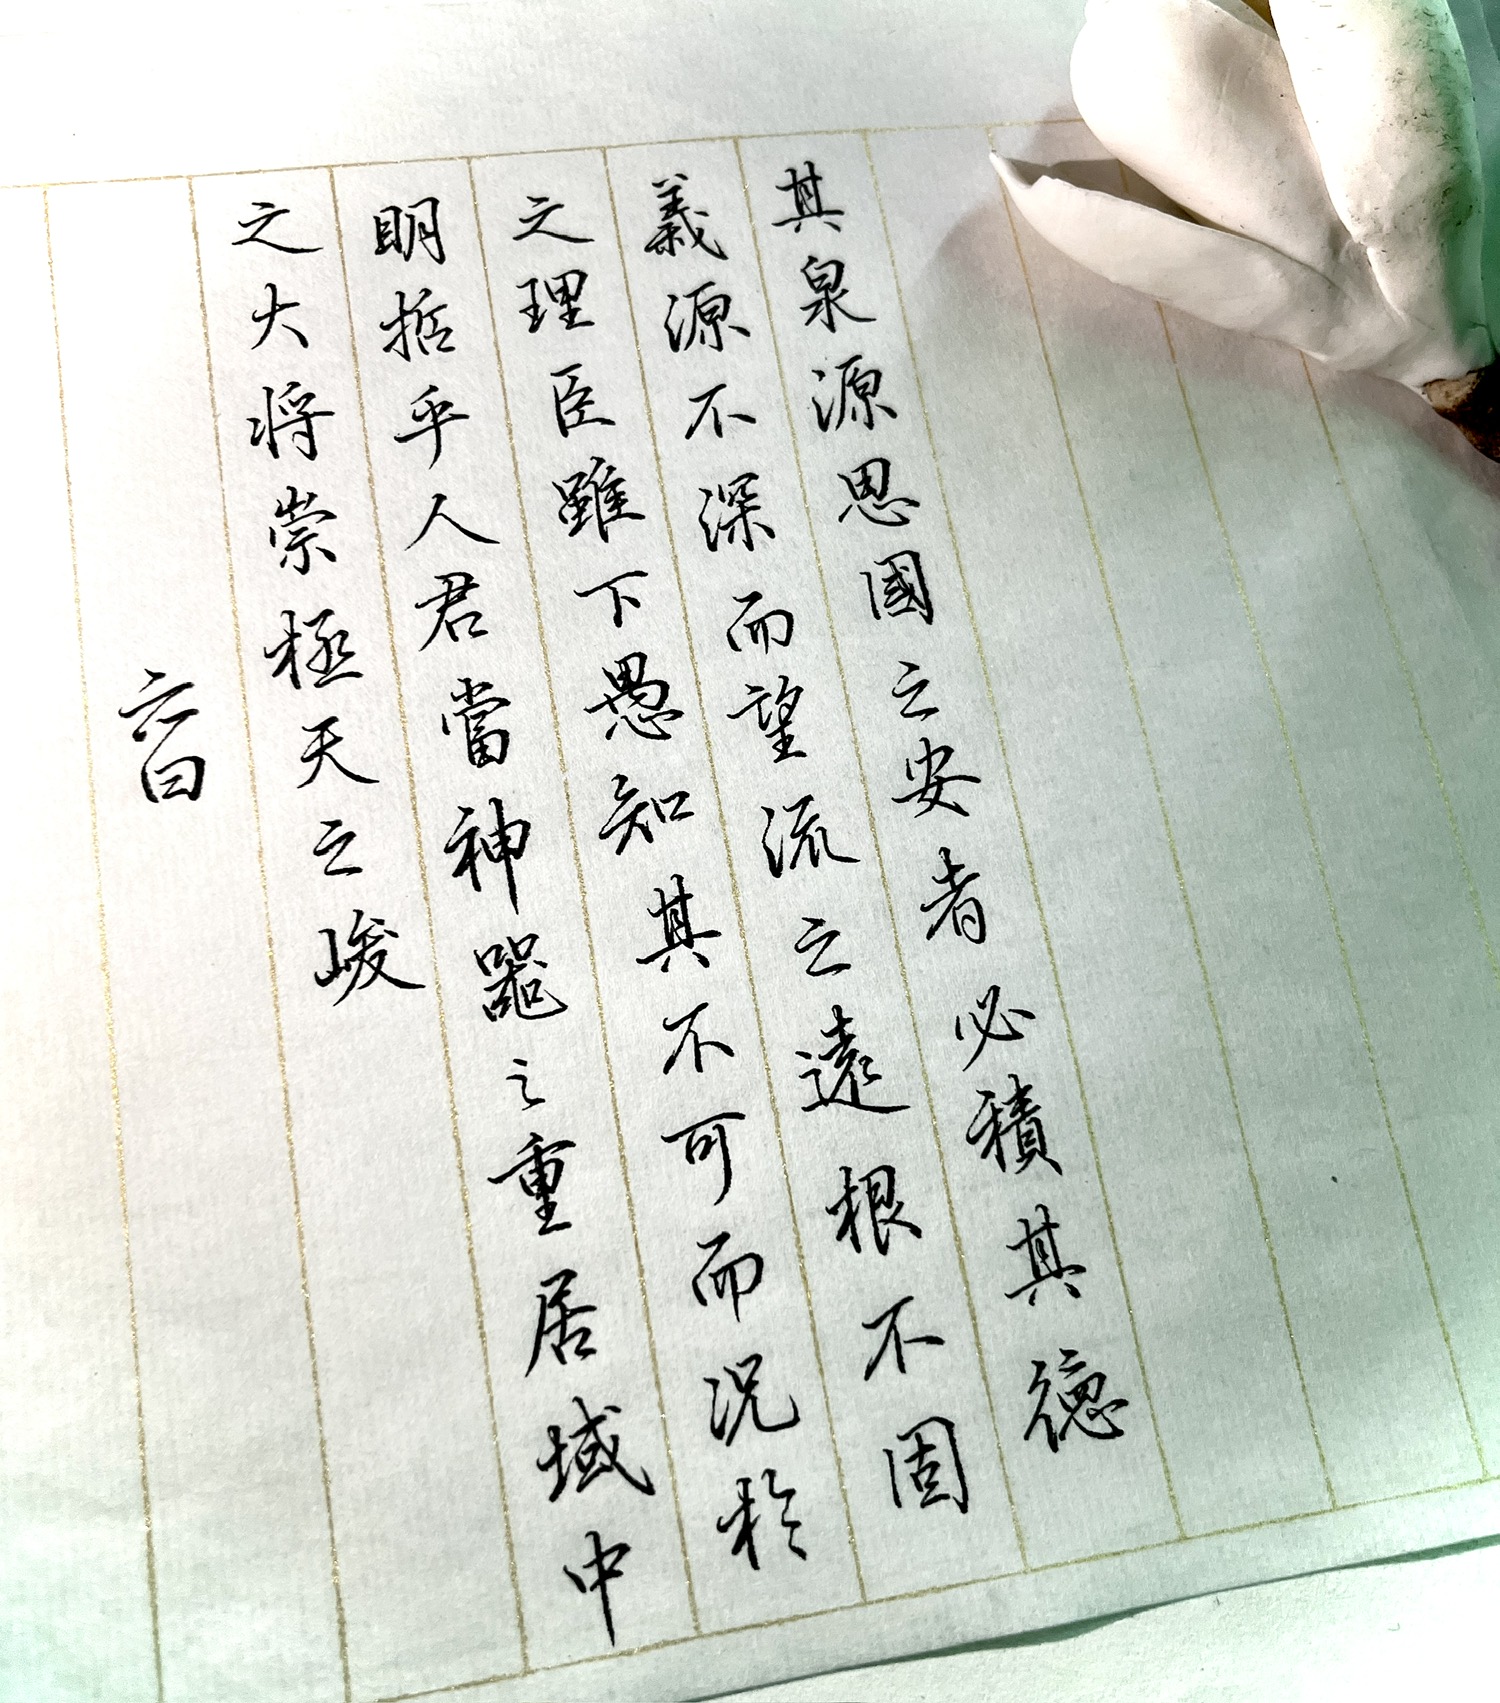 其泉源思國之安者必積其德
義源不深而望流之遠根不固
之理臣雖下愚知其不可而況於
明哲乎人君當神器之重居域中
之大将崇極天之峻